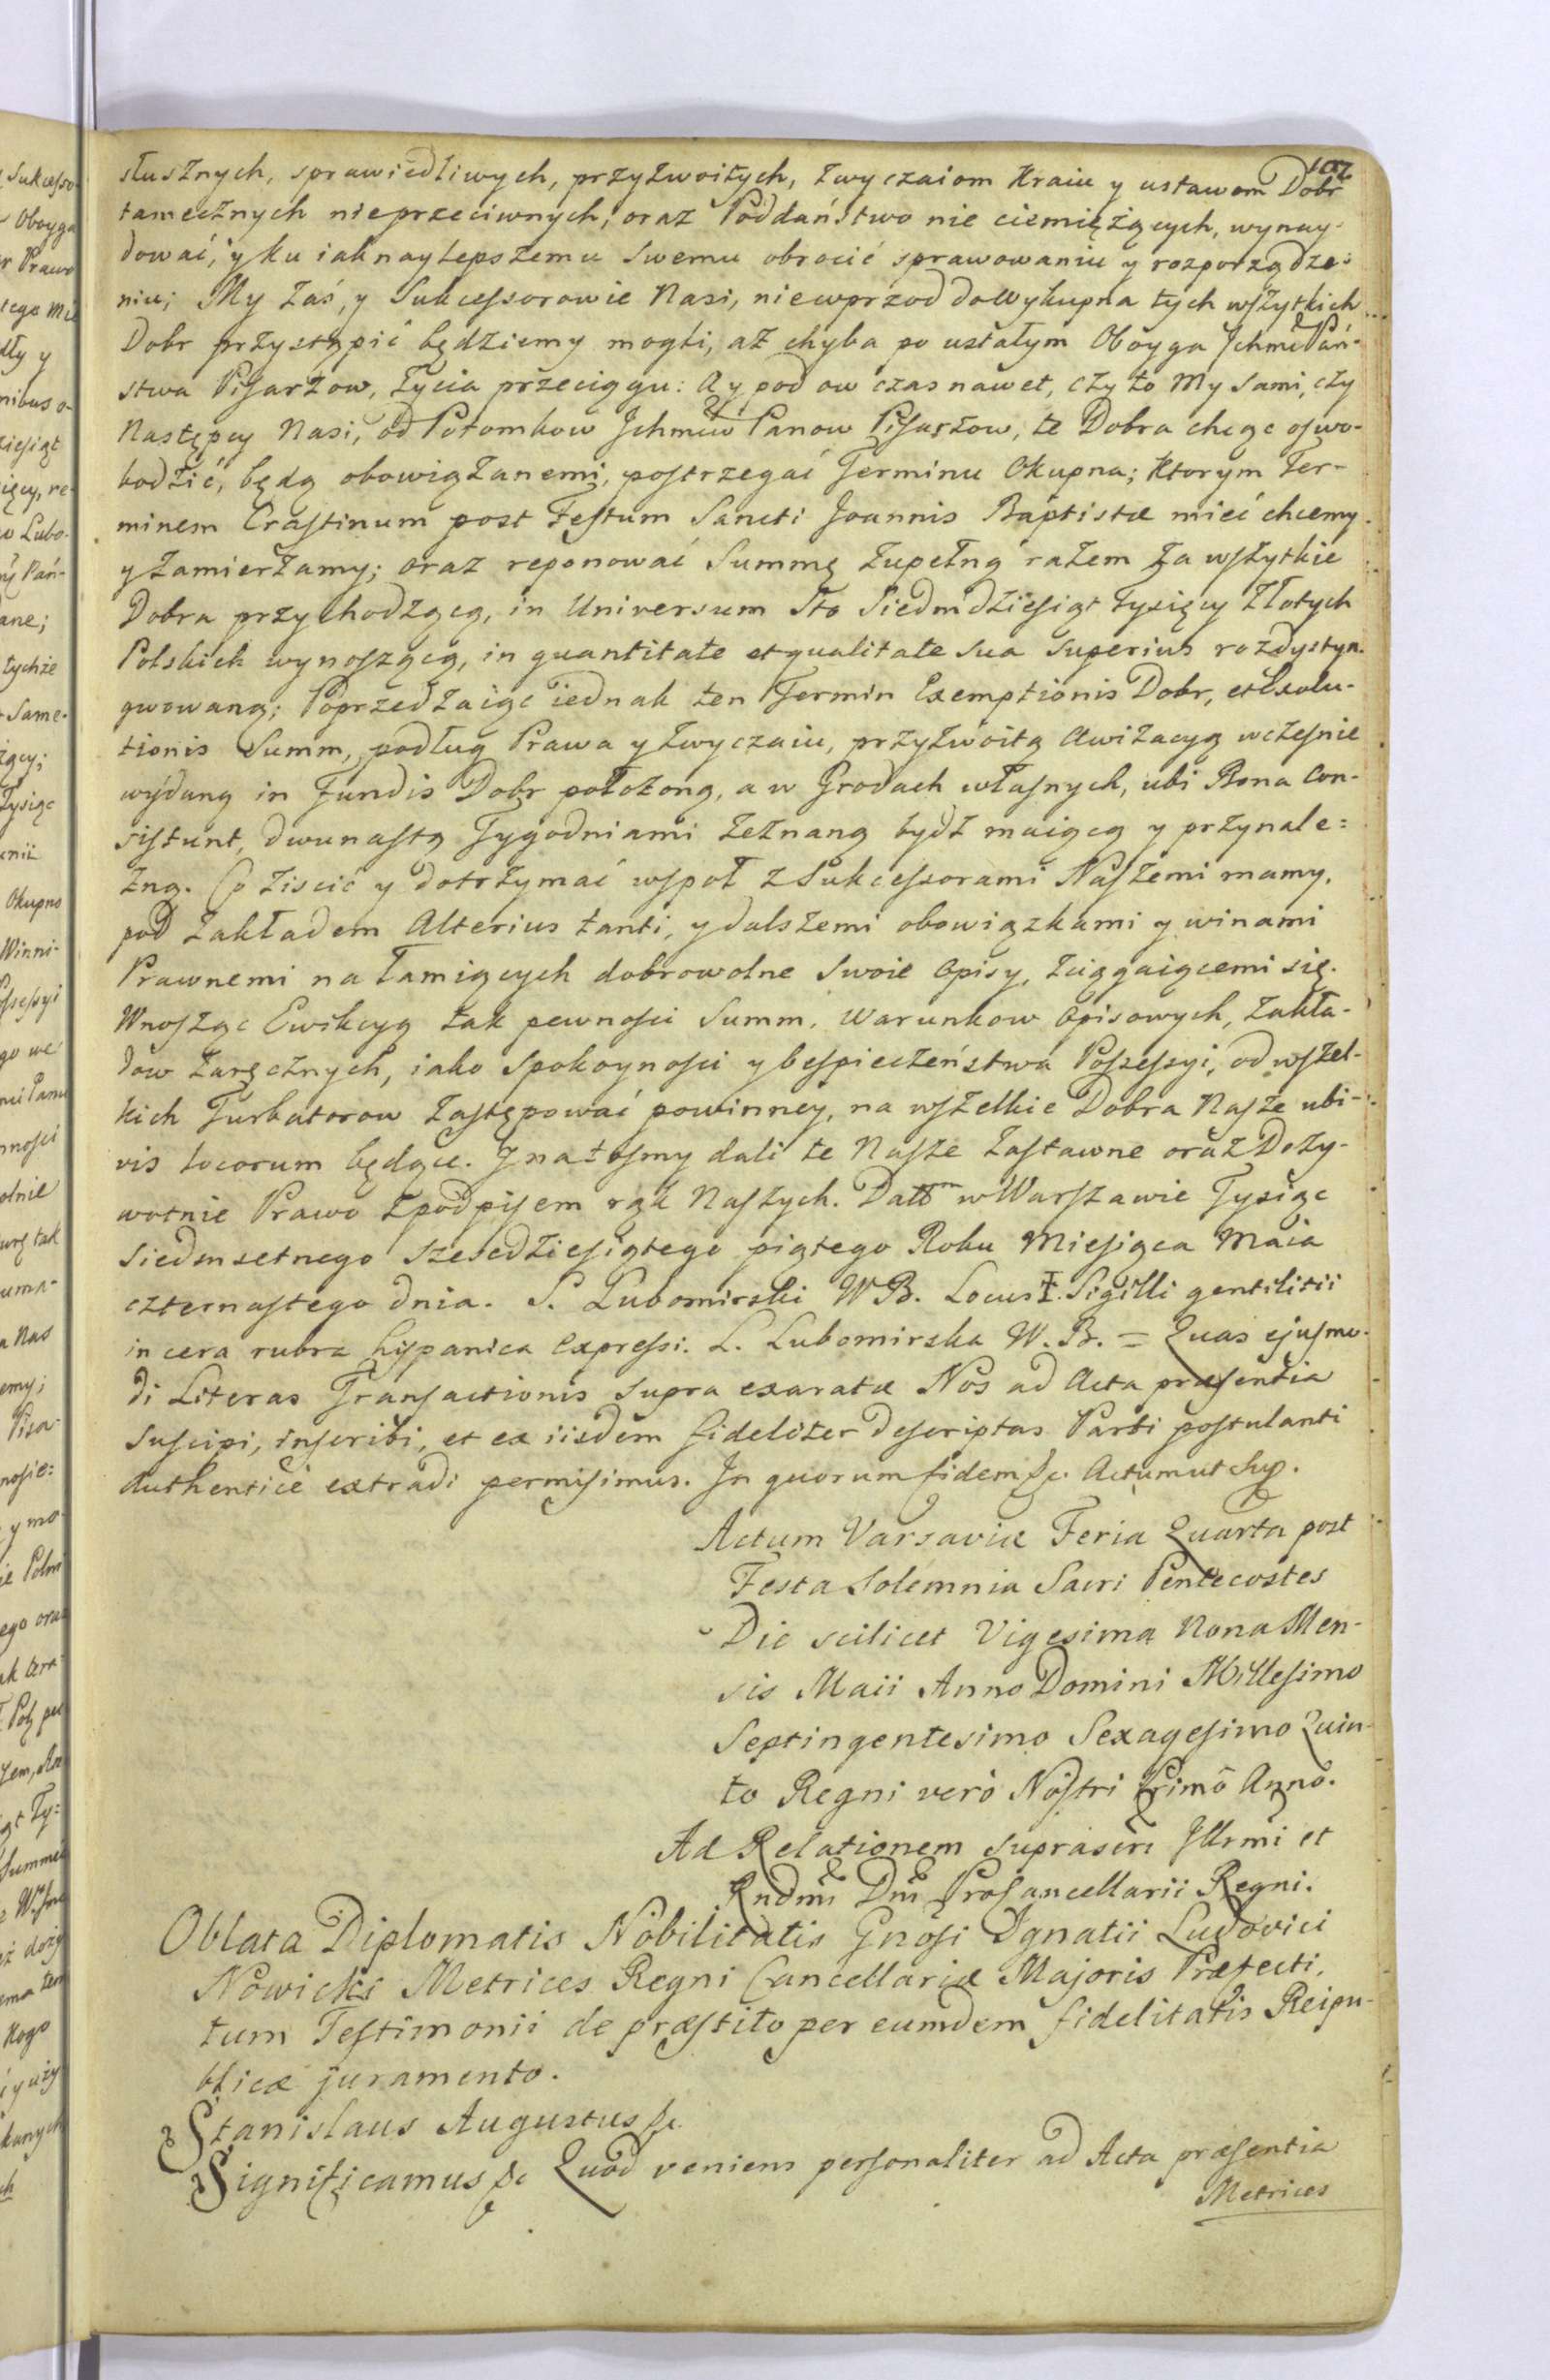 107
słusznych, sprawiedliwych, przyzwoitych, zwyczaiom Kraiu y ustawom Dobr
tamecznych nieprzeciwnych, oraz Poddaństwo nie ciemiężących, wynay-
dować, y ku iaknaylepszemu Swemu obrocić sprawowaniu y rozporządze=
niu; My zaś, y Sukcessorowie Nasi, niewprzod do wykupna tych wszytkich
Dobr przystąpić będziemy mogli, aż chyba po ustałym Oboyga Jchmć Pań-
stwa Pisarzow, życia przeciągu: A y pod ow czas nawet, czy to My sami, czy
Następcy Nasi, od Potomkow Jchmciw Panow Pisarzow, te Dobra chcąc oswo-
bodzić, będą obowiązanemi, postrzegać Terminu Okupna; Ktorym Ter-
minem Crastinum post Festum Sancti Joannis Baptistæ mieć chcemy
y zamierzamy; oraz reponować Summę zupełną razem za wszytkie
Dobra przychodzącą, in Universum Sto Siedmdziesiąt Tysięcy Złotych
Polskich wynoszącą, in quantitate et qualitate sua superius rozdystyn-
gwowaną; Poprzedzaiąc iednak ten Termin Exemptionis Dobr, et Exolu-
tionis Summ, podług Prawa y zwyczaiu, przyzwoitą Awizacyą wcześnie
wydaną in Fundis Dobr położoną, a w Grodach własnych, ubi Bona Con-
sistunt, dwunastą Tygodniami zeznaną bydź maiącą y przynale=
żną. Co ziscić y dotrzymać wspoł z Sukcessorami Naszemi mamy,
pod zakładem Alterius tanti, y dalszemi obowiązkami y winami
Prawnemi na łamiących dobrowolne Swoie Opisy, zciągaiącemi się.
Wnosząc Ewikcyą tak pewności Summ, Warunkow Opisowych, zakła-
dow zaręcznych, iako Spokoyności y bespieczeństwa Possessyi, od wszel-
kich Turbatorow zastępować powinney, na wszelkie Dobra Nasze ubi-
vis locorum będące. Y na tosmy dali te Nasze Zastawne oraz Doży-
wotnie Prawo z podpisem rąk Naszych. Dattm w Warszawie Tysiąc
Siedmsetnego Szescdziesiątego piątego Roku Miesiąca Maia
czternastego dnia. S. Lubomirski W B. Locus Sigilli gentilitii
in cera rubra hypanica expressi. L. Lubomirska W. B. = Quas ejusmo-
di Literas Transactionis supra exaratæ Nos ad Acta præsentia
Suscipi, inscribi, et ex iisdem fideliter descriptas Parti postulanti
Authentice extradi permisimus. In quorum fidem &c. Actum ut Sup.
Actum Varsaviæ Feria Quarta post
Festa Solemnia Sacri Pentecostes
Die scilicet Vigesima Nona Men-
sis Maii Anno Domini Millesimo
Septingentesimo Sexagesimo Quin-
to Regni verò Nostri Primô Anno.
Ad Relationem suprascri Jllrmi et
Rndmi Dni ProCancellarii Regni.
Oblata Diplomatis Nobilitatis Gnosi Ignatii Ludovici
Nowicki Metrices Regni Cancellariæ Majoris Præfecti,
tum Testimonii de præstito per eumdem fidelitatis Reipu-
blicæ juramento.
Stanislaus Augustus &c.
Significamus &c Quod veniens personaliter ad Acta præsentia
Metrices